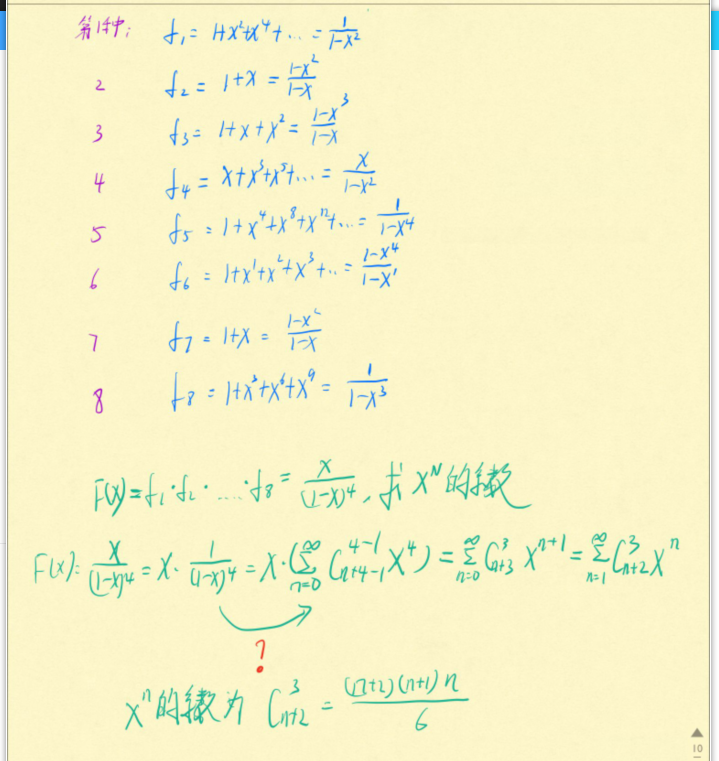 第1种: f₁ = 1+x²+x⁴+… = 1/(1-x²)
2 f₂ = 1+x = (1-x²)/(1-x)
3 f₃ = 1+x+x² = (1-x³)/(1-x)
4 f₄ = x+x³+x⁵+… = x/(1-x²)
5 f₅ = 1+x⁴+x⁸+x¹²+… = 1/(1-x⁴)
6 f₆ = 1+x¹+x²+x³+… = (1-x⁴)/(1-x¹)
7 f₇ = 1+x = (1-x²)/(1-x)
8 f₈ = 1+x³+x⁶+x⁹ = 1/(1-x³)
F(x)=f₁·f₂·….·f₈ = x/(1-x)⁴, 求 x^N 的系数
F(x)= x/(1-x)⁴ = x· 1/(1-x)⁴ = x·(∑_{n=0}^{∞} C_{n+4-1}^{4-1} x⁴) = ∑_{n=0}^{∞} C_{n+3}^{3} x^{n+1} = ∑_{n=1}^{∞} C_{n+2}^{3} x^n
?
x^n 的系数为 C_{n+2}^{3} = (n+2)(n+1)n/6
10